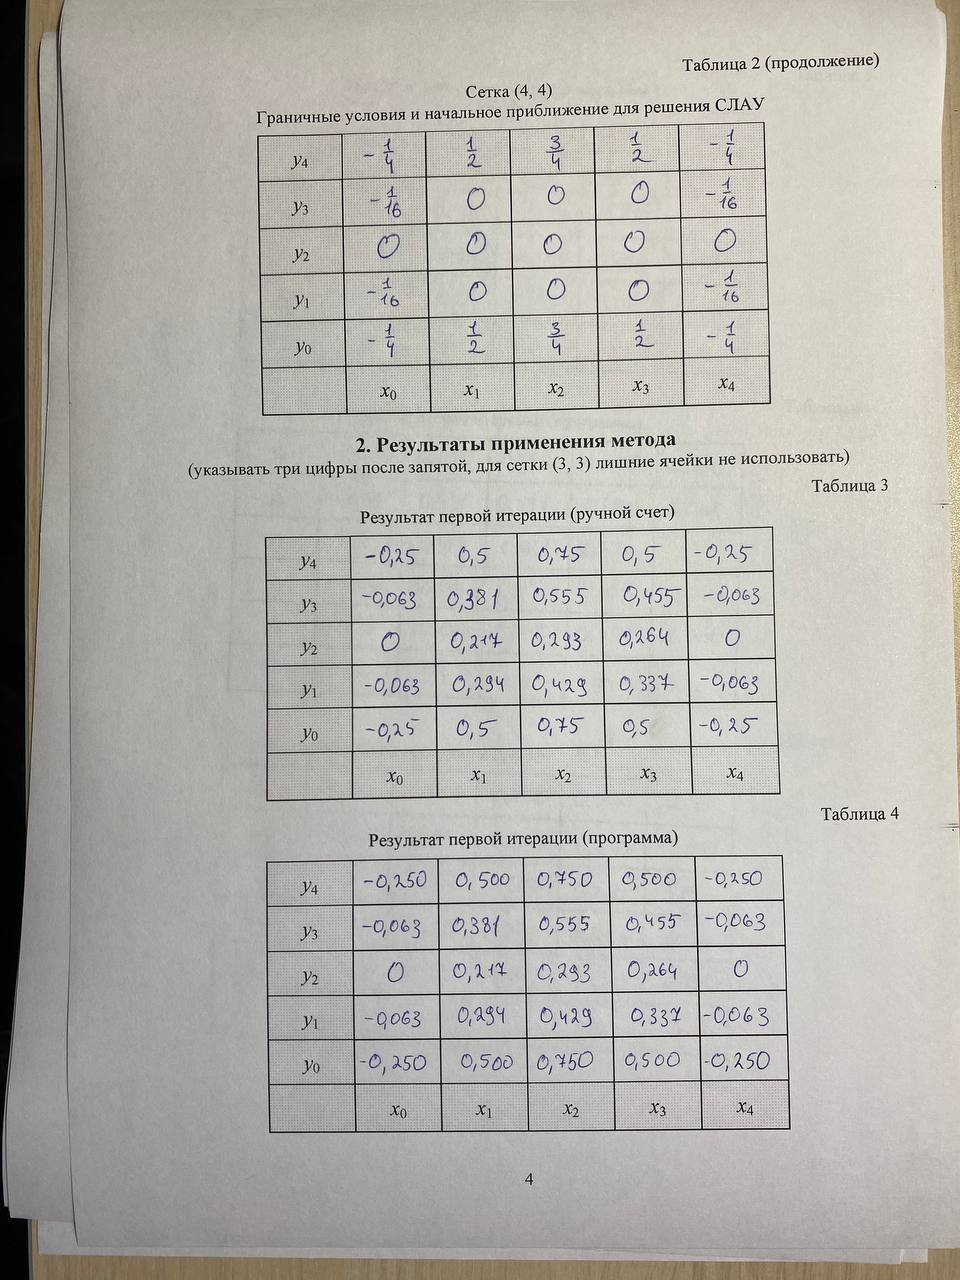 Таблица 2 (продолжение)
Сетка (4, 4)
Граничные условия и начальное приближение для решения СЛАУ
y4 -1/4 1/2 3/4 1/2 -1/4
y3 -1/16 0 0 0 -1/16
y2 0 0 0 0 0
y1 -1/16 0 0 0 -1/16
y0 -1/4 1/2 3/4 1/2 -1/4
x0 x1 x2 x3 x4
2. Результаты применения метода
(указывать три цифры после запятой, для сетки (3, 3) лишние ячейки не использовать)
Таблица 3
Результат первой итерации (ручной счет)
y4 -0,25 0,5 0,75 0,5 -0,25
y3 -0,063 0,381 0,555 0,455 -0,063
y2 0 0,217 0,293 0,264 0
y1 -0,063 0,294 0,429 0,337 -0,063
y0 -0,25 0,5 0,75 0,5 -0,25
x0 x1 x2 x3 x4
Таблица 4
Результат первой итерации (программа)
y4 -0,250 0,500 0,750 0,500 -0,250
y3 -0,063 0,381 0,555 0,455 -0,063
y2 0 0,217 0,293 0,264 0
y1 -0,063 0,294 0,429 0,337 -0,063
y0 -0,250 0,500 0,750 0,500 -0,250
x0 x1 x2 x3 x4
4